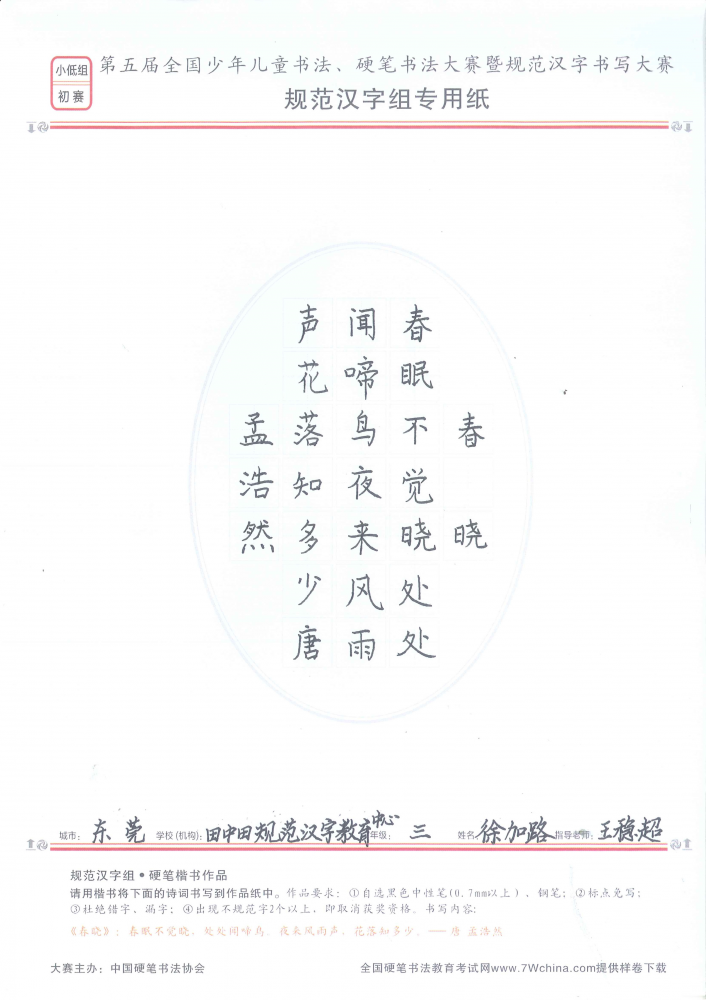 小低组
初赛
第五届全国少年儿童书法、硬笔书法大赛暨规范汉字书写大赛
规范汉字组专用纸
春晓
春眠不觉晓处处
闻啼鸟夜来风雨
声花落知多少唐
孟浩然
城市：东莞 学校(机构)：田中田规范汉字教育中心 年级：三 姓名：徐加路 指导老师：王稳超
规范汉字组●硬笔楷书作品
请用楷书将下面的诗词书写到作品纸中。作品要求：①自选黑色中性笔(0.7mm以上)、钢笔；②标点免写；
③杜绝错字、漏字；④出现不规范字2个以上，即取消获奖资格。书写内容：
《春晓》：春眠不觉晓，处处闻啼鸟。夜来风雨声，花落知多少。——唐 孟浩然
大赛主办：中国硬笔书法协会
全国硬笔书法教育考试网www.7Wchina.com提供样卷下载